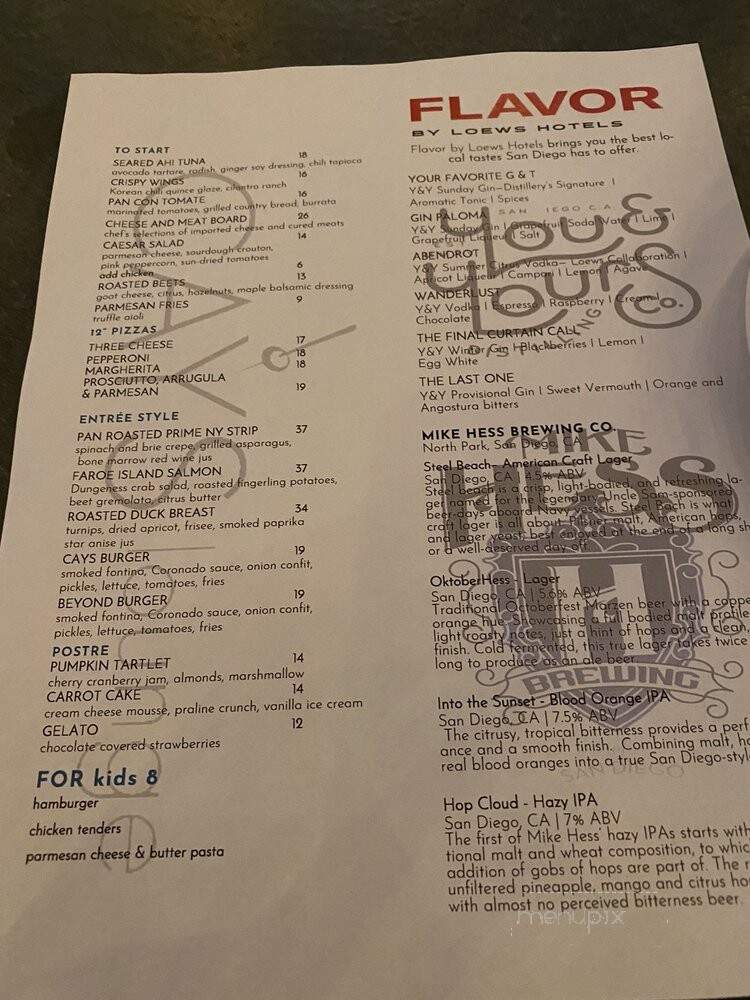 TO START
SEARED AHI TUNA 18
avocado tartare, radish, ginger soy dressing, chili tapioca
CRISPY WINGS 16
Korean chili quince glaze, cilantro ranch
PAN CON TOMATE 16
marinated tomatoes, grilled country bread, burrata
CHEESE AND MEAT BOARD 26
chef's selections of imported cheese and cured meats
CAESAR SALAD 14
parmesan cheese, sourdough crouton,
pink peppercorn, sun-dried tomatoes
add chicken 6
ROASTED BEETS 13
goat cheese, citrus, hazelnuts, maple balsamic dressing
PARMESAN FRIES 9
truffle aioli
12" PIZZAS
THREE CHEESE 17
PEPPERONI 18
MARGHERITA 18
PROSCIUTTO, ARRUGULA
& PARMESAN 19
ENTRÉE STYLE
PAN ROASTED PRIME NY STRIP 37
spinach and brie crepe, grilled asparagus,
bone marrow red wine jus
FAROE ISLAND SALMON 37
Dungeness crab salad, roasted fingerling potatoes,
beet gremolata, citrus butter
ROASTED DUCK BREAST 34
turnips, dried apricot, frisee, smoked paprika
star anise jus
CAYS BURGER 19
smoked fontina, Coronado sauce, onion confit,
pickles, lettuce, tomatoes, fries
BEYOND BURGER 19
smoked fontina, Coronado sauce, onion confit,
pickles, lettuce, tomatoes, fries
POSTRE
PUMPKIN TARTLET 14
cherry cranberry jam, almonds, marshmallow
CARROT CAKE 14
cream cheese mousse, praline crunch, vanilla ice cream
GELATO 12
chocolate covered strawberries
FOR kids 8
hamburger
chicken tenders
parmesan cheese & butter pasta
FLAVOR
BY LOEWS HOTELS
Flavor by Loews Hotels brings you the best lo-
cal tastes San Diego has to offer.
YOUR FAVORITE G & T
Y&Y Sunday Gin—Distillery's Signature |
Aromatic Tonic | Spices
GIN PALOMA
Y&Y Sunday Gin | Grapefruit Soda Water | Lime |
Grapefruit Liqueur | Salt
ABENDROT
Y&Y Summer Citrus Vodka— Loews Collaboration |
Apricot Liqueur | Campari | Lemon | Agave
WANDERLUST
Y&Y Vodka | Espresso | Raspberry | Cream |
Chocolate
THE FINAL CURTAIN CALL
Y&Y Winter Gin | Blackberries | Lemon |
Egg White
THE LAST ONE
Y&Y Provisional Gin | Sweet Vermouth | Orange and
Angostura bitters
You & Yours Co.
MIKE HESS BREWING CO.
North Park, San Diego, CA
Steel Beach— American Craft Lager
San Diego, CA | 4.5% ABV
Steel beach is a crisp, light-bodied, and refreshing la-
ger named for the legendary Uncle Sam-sponsored
beer-days aboard Navy vessels. Steel Bach is what
craft lager is all about. Pilsner malt, American hops,
and lager yeast; best enjoyed at the end of a long sh
or a well-deserved day off.
OktoberHess - Lager
San Diego, CA | 5.6% ABV
Traditional Octoberfest Marzen beer with a coppe
orange hue showcasing full bodied malt profile
light toasty notes, just a hint of hops and a clean,
finish. Cold fermented, this true lager takes twice
long to produce as an ale beer
Into the Sunset - Blood Orange IPA
San Diego, CA | 7.5% ABV
The citrusy, tropical bitterness provides a perf
ance and a smooth finish. Combining malt, ho
real blood oranges into a true San Diego-styl
Hop Cloud - Hazy IPA
San Diego, CA | 7% ABV
The first of Mike Hess' hazy IPAs starts with
tional malt and wheat composition, to whic
addition of gobs of hops are part of. The r
unfiltered pineapple, mango and citrus ho
with almost no perceived bitterness beer.
MIKE
HESS
BREWING
SAN DIEGO
menupix